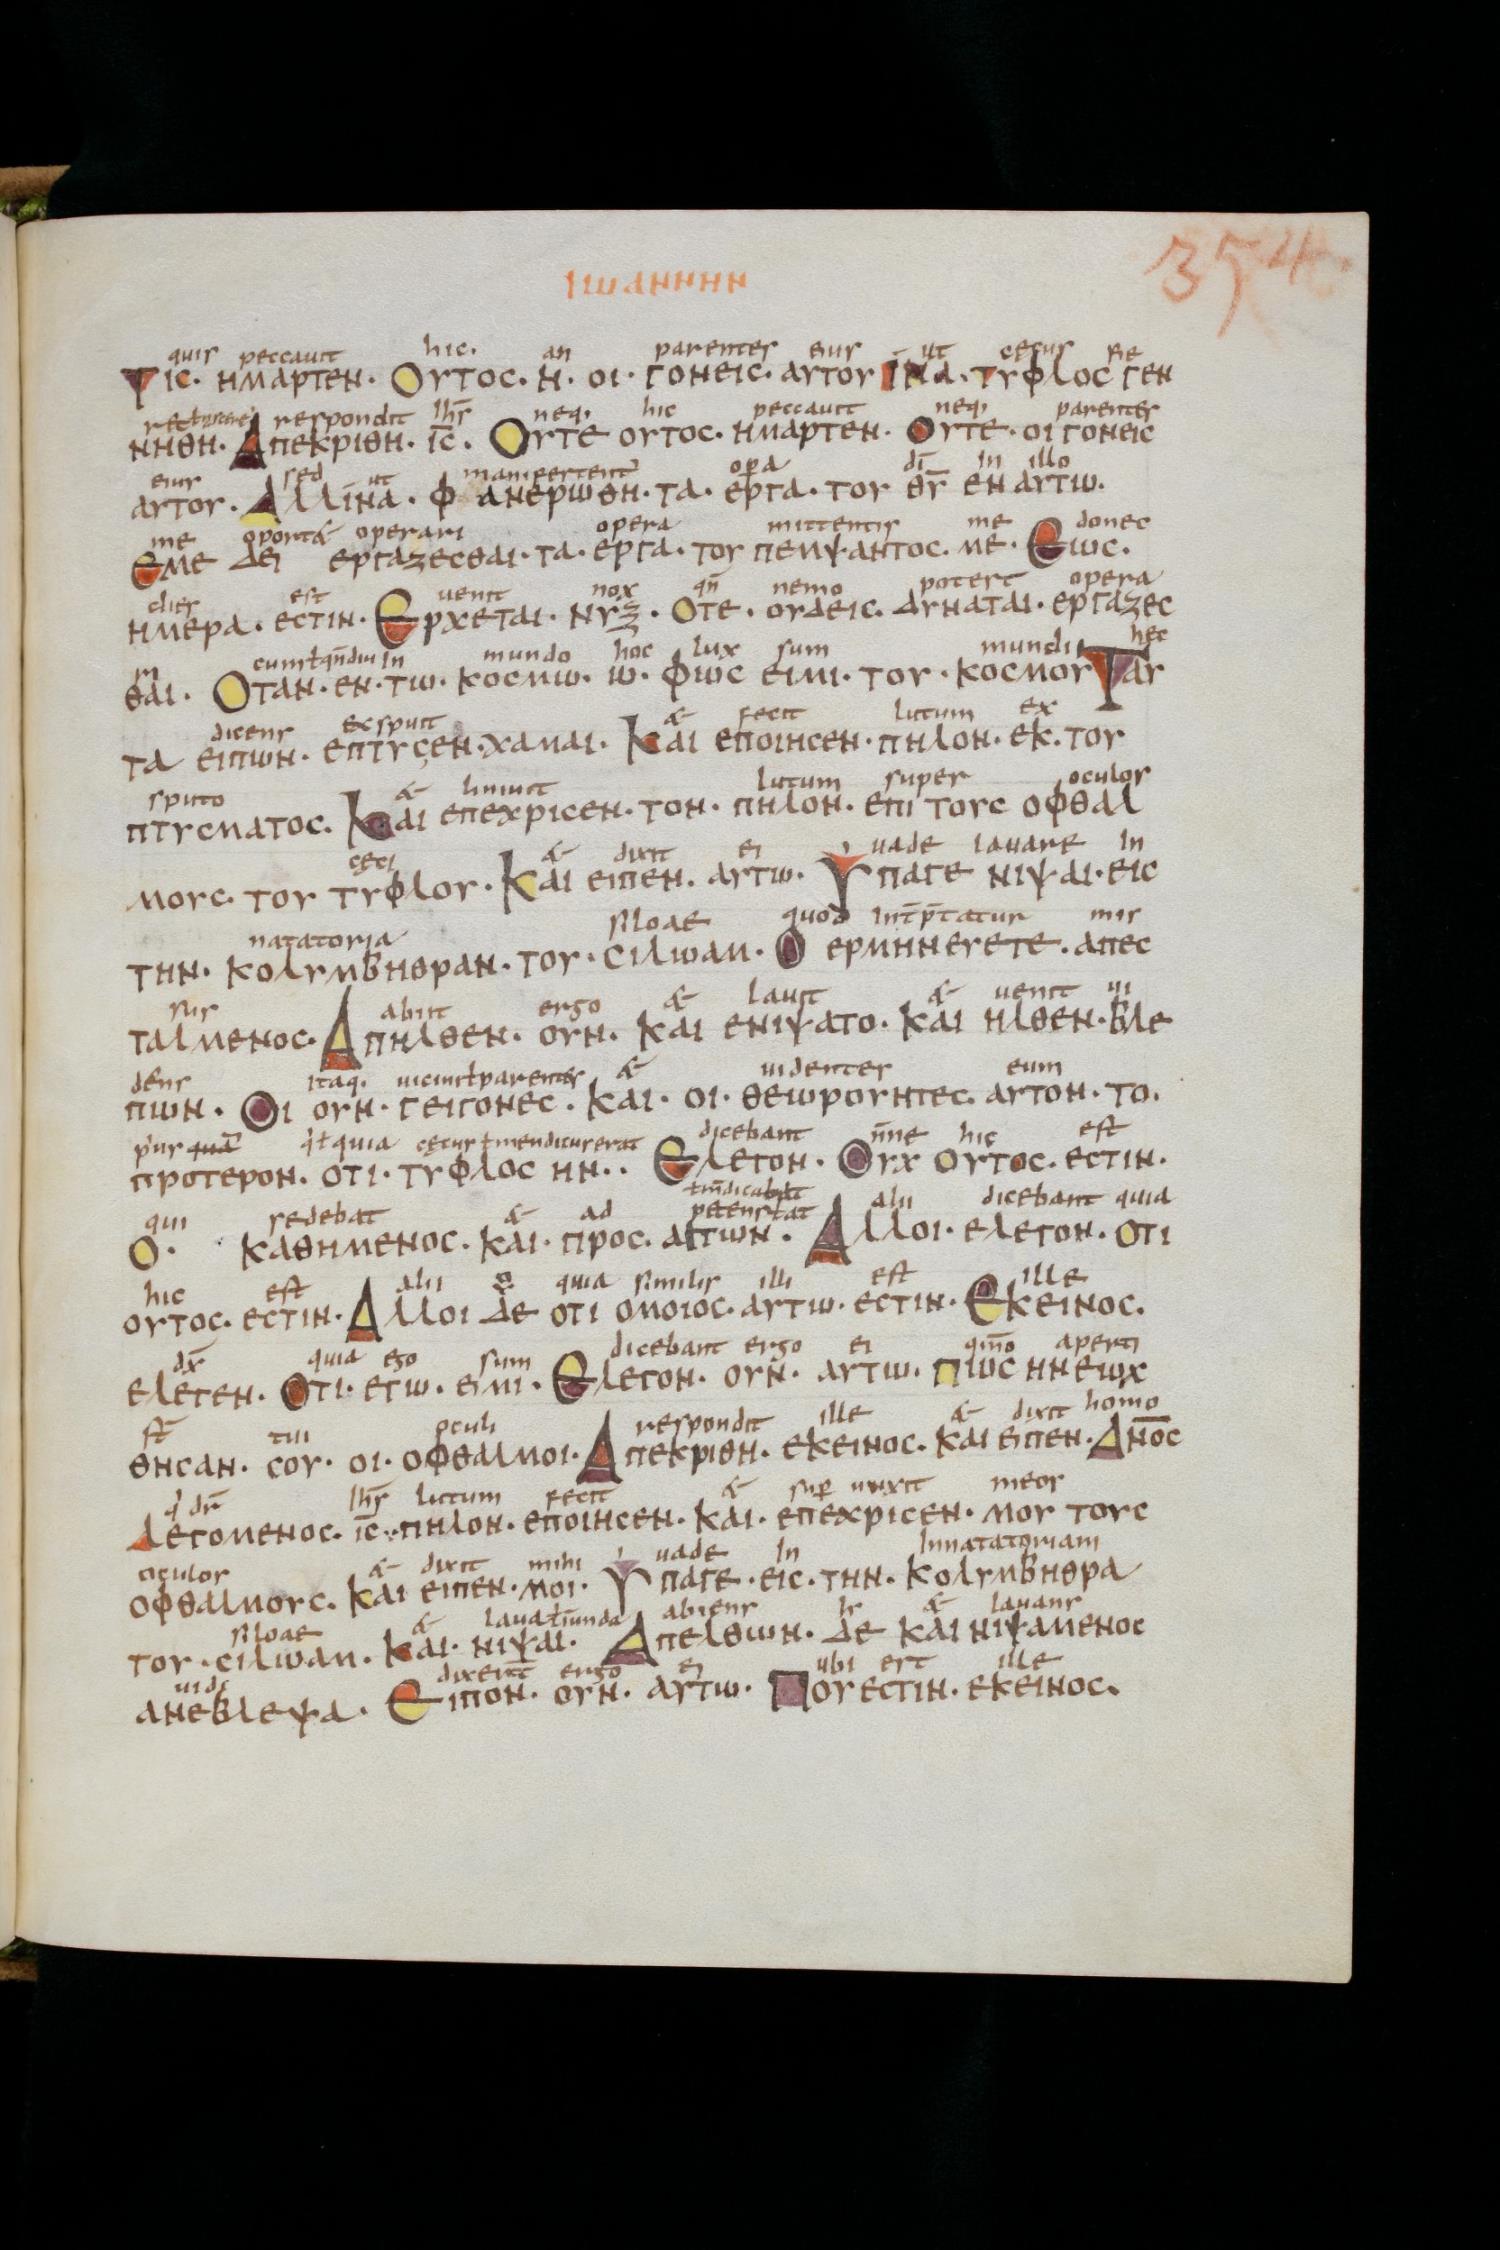 ΙωΑΝΝΗΝ
354
quis peccauit hic. an parentes eius ut cęcus
ΤΙC· ΗΜΑΡΤΕΝ· ΟΥΤΟC· Η· ΟΙ· ΓΟΝΕΙC· ΑΥΤΟΥ ΙΝΑ· ΤΥΦΛΟC ΓΕΝ
respondit ihs neq; hic peccauit neq; parentes
ΝΗΘΗ· ΑΠΕΚΡΙΘΗ· ΙC̅· ΟΥΤΕ ΟΥΤΟC· ΗΜΑΡΤΕΝ· ΟΥΤΕ· ΟΙ ΓΟΝΕΙC
eius sed ut manifestent᷑ oꝑa di̅ in illo
ΑΥΤΟΥ· ΑΛΛΙΝΑ· ΦΑΝΕΡωΘΗ· ΤΑ· ΕΡΓΑ· ΤΟΥ ΘΥ̅ ΕΝ ΑΥΤω·
me oport& operari opera mittentis me donec
ΕΜΕ ΔΕΙ ΕΡΓΑΖΕCΘΑΙ· ΤΑ· ΕΡΓΑ· ΤΟΥ ΠΕΜΨΑΝΤΟC· ΜΕ· ΕωC·
dies est uenit nox qn̅ nemo potest opera
ΗΜΕΡΑ· ΕCΤΙΝ· ΕΡΧΕΤΑΙ· ΝΥΞ· ΟΤΕ· ΟΥΔΕΙC· ΔΥΝΑΤΑΙ· ΕΡΓΑΖΕC
cum ł qn̅diu in mundo hoc lux sum mundi hęc
ΘΑΙ· ΟΤΑΝ· ΕΝ· ΤΩ· ΚΟCΜω· ω· ΦωC ΕΙΜΙ· ΤΟΥ· ΚΟCΜΟΥ ΤΑΥ
dicens exspuit & fecit lutum ex
ΤΑ ΕΙΠωΝ· ΕΠΤΥCΕΝ· ΧΑΜΑΙ· ΚΑΙ ΕΠΟΙΗCΕΝ· ΠΗΛΟΝ· ΕΚ· ΤΟΥ
sputo & liniuit lutum super oculos
ΠΤΥCΜΑΤΟC· ΚΑΙ ΕΠΕΧΡΙCΕΝ· ΤΟΝ· ΠΗΛΟΝ· ΕΠΙ ΤΟΥC ΟΦΘΑΛ
cęci & dixit ei uade lauare in
ΜΟΥC· ΤΟΥ ΤΥΦΛΟΥ· ΚΑΙ ΕΙΠΕΝ· ΑΥΤω· ΥΠΑΓΕ ΝΙΨΑΙ· ΕΙC
natatoria siloae quod int̅p̅tatur mis
ΤΗΝ· ΚΟΛΥΜΒΗΘΡΑΝ· ΤΟΥ· CΙΛωΑΜ· Ο ΕΡΜΗΝΕΥΕΤΕ· ΑΠΕC
sus abiit ergo & lauit & uenit ui
ΤΑΛΜΕΝΟC· ΑΠΗΛΘΕΝ· ΟΥΝ· ΚΑΙ ΕΝΙΨΑΤΟ· ΚΑΙ ΗΛΘΕΝ· ΒΛΕ
dens itaq· uicini ł parentes & uidentes eum
ΠωΝ· ΟΙ ΟΥΝ· ΓΕΙΤΟΝΕC· ΚΑΙ· ΟΙ· ΘΕωΡΟΥΝΤΕC· ΑΥΤΟΝ· ΤΟ·
quia cęcus ł mendicus erat dicebant n̅ne hic est
ΠΡΟΤΕΡΟΝ· ΟΤΙ· ΤΥΦΛΟC ΗΝ·· ΕΛΕΓΟΝ· ΟΥΧ ΟΥΤΟC· ΕCΤΙΝ·
qui sedebat & ad alii dicebant quia
Ο· ΚΑΘΗΜΕΝΟC· ΚΑΙ· ΠΡΟC· ΑΙΤωΝ· ΑΛΛΟΙ· ΕΛΕΓΟΝ· ΟΤΙ
hic est alii quia similis illi est ille
ΟΥΤΟC· ΕCΤΙΝ· ΑΛΛΟΙ ΔΕ ΟΤΙ ΟΜΟΙΟC· ΑΥΤω· ΕCΤΙΝ· ΕΚΕΙΝΟC·
dx̅ quia ego sum dicebant ergo ei qm̅o aperti
ΕΛΕΓΕΝ· ΟΤΙ· ΕΓω· ΕΙΜΙ· ΕΛΕΓΟΝ· ΟΥΝ· ΑΥΤω· ΠωC ΗΝΕωΧ
st̅ tui oculi respondit ille & dixit homo
ΘΗCΑΝ· CΟΥ· ΟΙ· ΟΦΘΑΛΜΟΙ· ΑΠΕΚΡΙΘΗ· ΕΚΕΙΝΟC· ΚΑΙ ΕΙΠΕΝ· ΑΝ̅ΟC
ihs lutum fecit & suꝑ unxit meos
ΛΕΓΟΜΕΝΟC· ΙC̅· ΠΗΛΟΝ· ΕΠΟΙΗCΕΝ· ΚΑΙ· ΕΠΕΧΡΙCΕΝ· ΜΟΥ ΤΟΥC
oculos & dixit mihi uade in in natatoriam
ΟΦΘΑΛΜΟΥC· ΚΑΙ ΕΙΠΕΝ· ΜΟΙ· ΥΠΑΓΕ· ΕΙC· ΤΗΝ· ΚΟΛΥΜΒΗΘΡΑ
siloae & abiens & lauans
ΤΟΥ· CΙΛωΑΜ· ΚΑΙ· ΝΙΨΑΙ· ΑΠΕΛΘωΝ· ΔΕ ΚΑΙ ΝΙΨΑΜΕΝΟC
uidi dixert̅ ergo ei ubi est ille
ΑΝΕΒΛΕΨΑ· ΕΙΠΟΝ· ΟΥΝ· ΑΥΤω· ΠΟΥ ΕCΤΙΝ· ΕΚΕΙΝΟC·